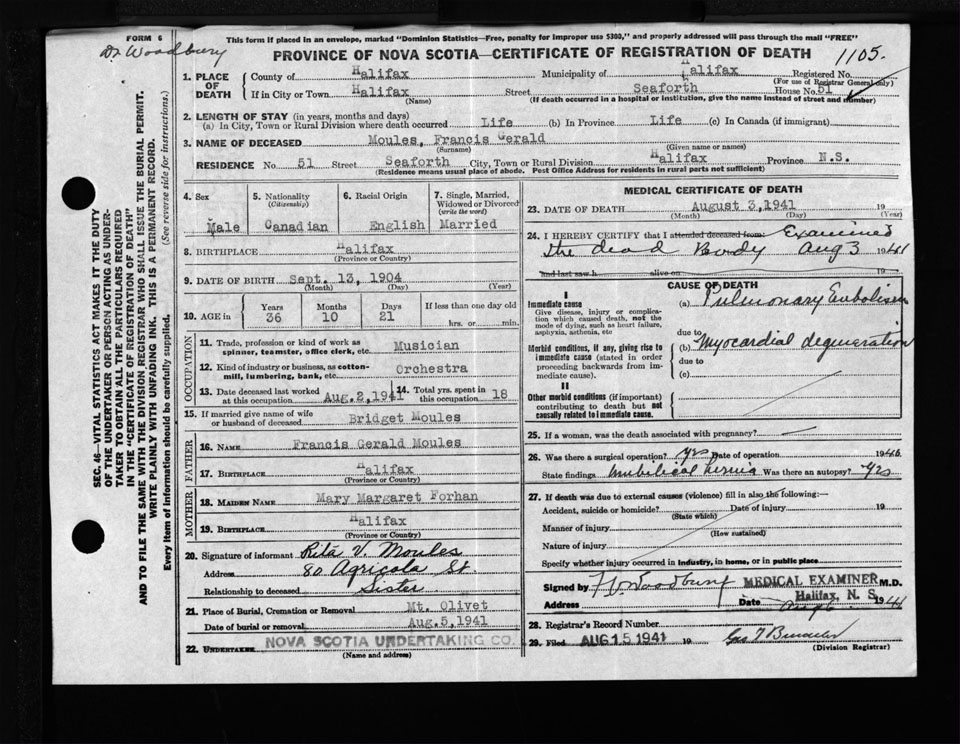 FORM 6
This form if placed in an envelope, marked "Dominion Statistics—Free, penalty for improper use $300," and properly addressed will pass through the mail "FREE"
Dr Woodbury
PROVINCE OF NOVA SCOTIA—CERTIFICATE OF REGISTRATION OF DEATH
1105.
1. PLACE OF DEATH
County of Halifax Municipality of Halifax Registered No.
(For use of Registrar General only)
If in City or Town Halifax Street Seaforth House No. 51
(Name) (If death occurred in a hospital or institution, give the name instead of street and number)
2. LENGTH OF STAY (in years, months and days)
(a) In City, Town or Rural Division where death occurred Life (b) In Province Life (c) In Canada (if immigrant)
3. NAME OF DECEASED Moules, Francis Gerald
(Surname) (Given name or names)
RESIDENCE No 51 Street Seaforth City, Town or Rural Division Halifax Province N.S.
(Residence means usual place of abode. Post Office Address for residents in rural parts not sufficient)
4. Sex Male
5. Nationality (Citizenship) Canadian
6. Racial Origin English
7. Single, Married, Widowed or Divorced (write the word) Married
8. BIRTHPLACE Halifax
(Province or Country)
9. DATE OF BIRTH Sept. 13, 1904
(Month) (Day) (Year)
10. AGE in Years 36 Months 10 Days 21 If less than one day old hrs. or min.
OCCUPATION
11. Trade, profession or kind of work as spinner, teamster, office clerk, etc. Musician
12. Kind of industry or business, as cotton-mill, lumbering, bank, etc. Orchestra
13. Date deceased last worked at this occupation Aug. 2, 1941
14. Total yrs. spent in this occupation 18
15. If married give name of wife or husband of deceased Bridget Moules
FATHER
16. NAME Francis Gerald Moules
17. BIRTHPLACE Halifax
(Province or Country)
MOTHER
18. MAIDEN NAME Mary Margaret Forhan
19. BIRTHPLACE Halifax
(Province or Country)
20. Signature of informant Rita V. Moules
Address 80 Agricola St.
Relationship to deceased Sister
21. Place of Burial, Cremation or Removal Mt. Olivet
Date of burial or removal Aug. 5, 1941
22. UNDERTAKER NOVA SCOTIA UNDERTAKING CO.
(Name and address)
MEDICAL CERTIFICATE OF DEATH
23. DATE OF DEATH August 3, 1941 19
(Month) (Day) (Year)
24. I HEREBY CERTIFY that I attended deceased from: Examined
the dead Body Aug 3 1941
and last saw h alive on 19
CAUSE OF DEATH
I
Immediate cause (a) Pulmonary Embolism
Give disease, injury or complication which caused death, not the mode of dying, such as heart failure, asphyxia, asthenia, etc
due to
Morbid conditions, if any, giving rise to immediate cause (stated in order proceeding backwards from immediate cause). (b) Myocardial degeneration
due to
(c)
II
Other morbid conditions (if important) contributing to death but not causally related to immediate cause.
25. If a woman, was the death associated with pregnancy? —
26. Was there a surgical operation? yes Date of operation 1940
State findings umbilical hernia Was there an autopsy? yes
27. If death was due to external causes (violence) fill in also the following:—
Accident, suicide or homicide? Date of injury 19
(State which)
Manner of injury
(How sustained)
Nature of injury
Specify whether injury occurred in industry, in home, or in public place
Signed by Woodbury MEDICAL EXAMINER M.D.
Address Halifax, N. S.
Date Aug 1941
28. Registrar's Record Number
29. Filed AUG 15 1941 19
(Division Registrar)
SEC. 46—VITAL STATISTICS ACT MAKES IT THE DUTY
OF THE UNDERTAKER OR PERSON ACTING AS UNDER-
TAKER TO OBTAIN ALL THE PARTICULARS REQUIRED
IN THE "CERTIFICATE OF REGISTRATION OF DEATH"
AND TO FILE THE SAME WITH THE DIVISION REGISTRAR WHO SHALL ISSUE THE BURIAL PERMIT.
WRITE PLAINLY WITH UNFADING INK. THIS IS A PERMANENT RECORD.
Every item of information should be carefully supplied. (See reverse side for instructions.)